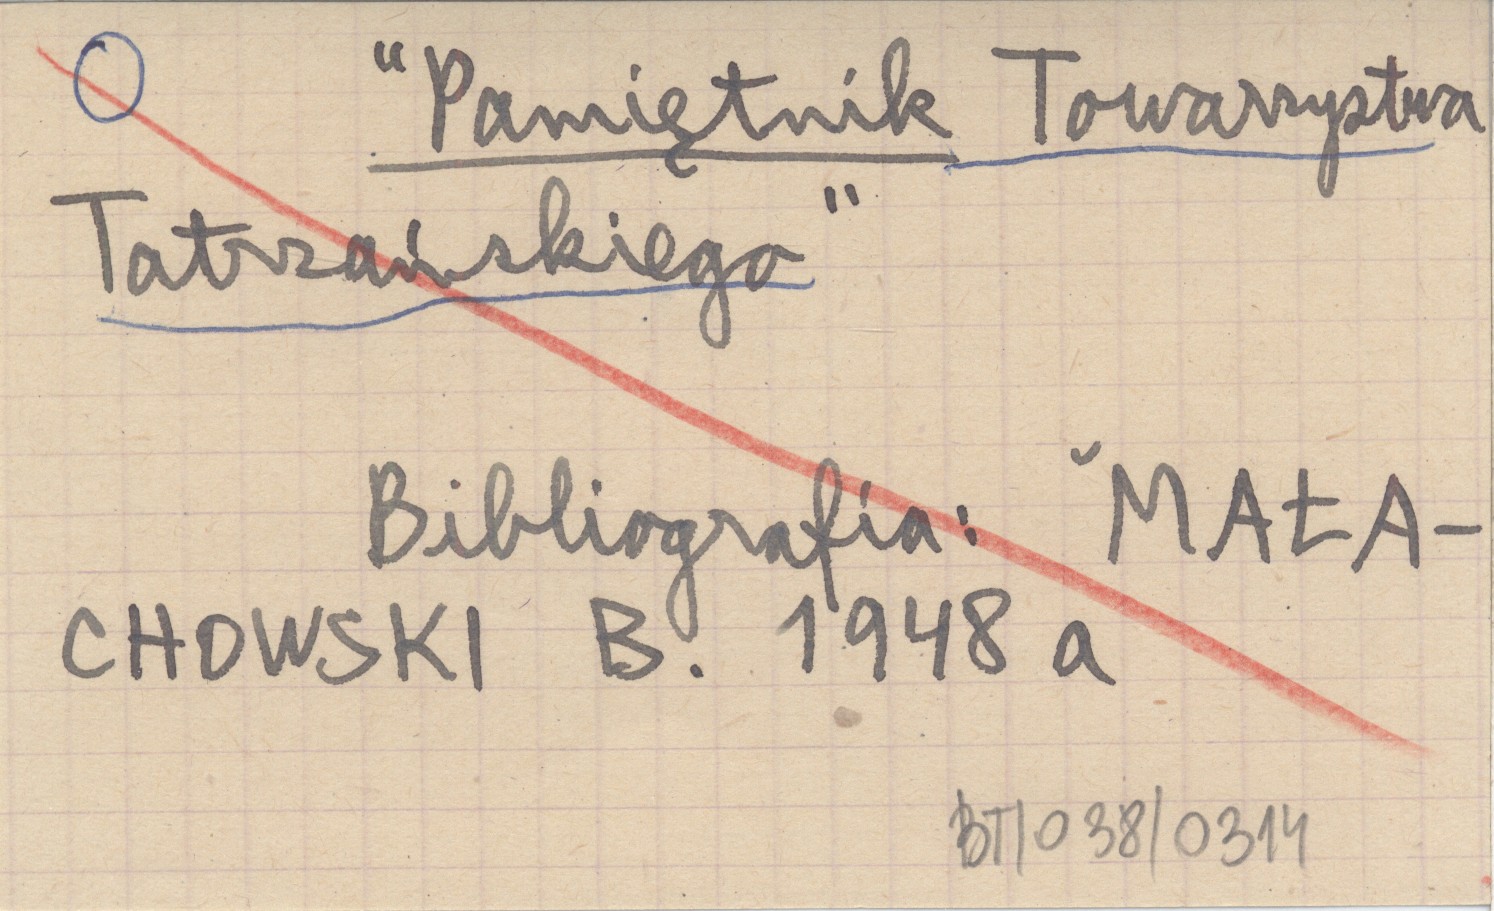 "Pamiętnik Towarzystwa
Tatrzańskiego"
Bibliografia: MAŁA-
CHOWSKI B. 1948 a
BT/038/0314